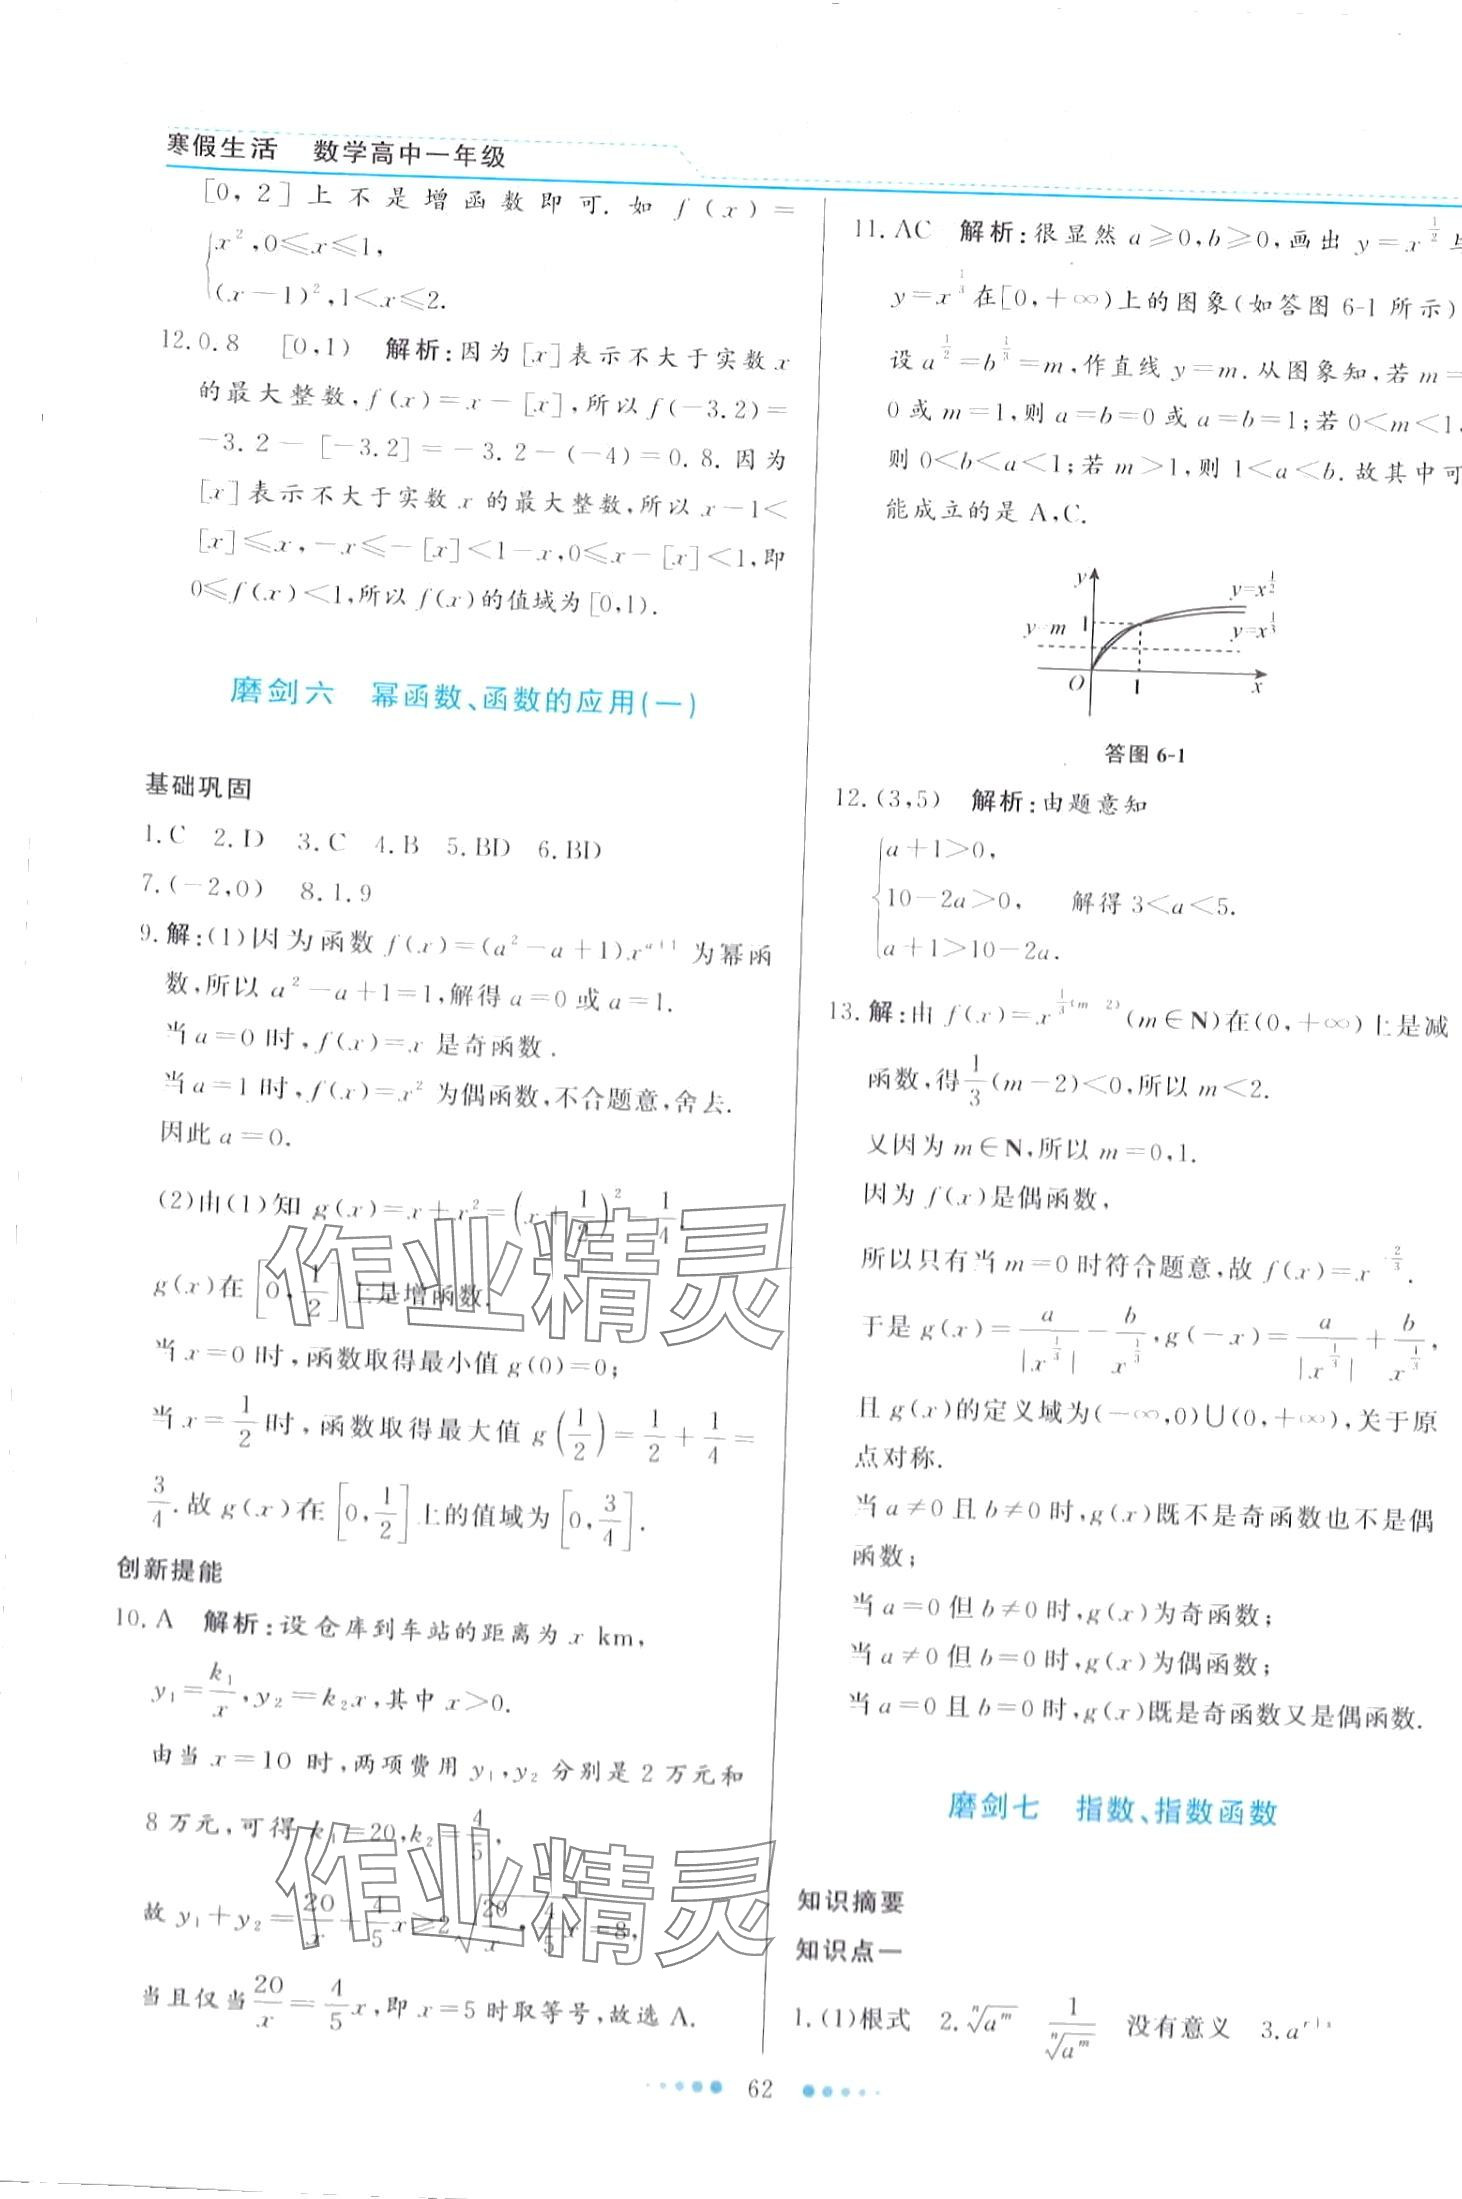 寒假生活 数学高中一年级
[0,2]上不是增函数即可.如 f(x)=
{x²,0≤x≤1,
(x-1)²,1<x≤2.
12.0.8 [0,1) 解析:因为[x]表示不大于实数 x
的最大整数,f(x)=x-[x],所以 f(-3.2)=
-3.2-[-3.2]=-3.2-(-4)=0.8.因为
[x]表示不大于实数 x 的最大整数,所以 x-1<
[x]≤x,-x≤-[x]<1-x,0≤x-[x]<1,即
0≤f(x)<1,所以 f(x)的值域为[0,1).
磨剑六 幂函数、函数的应用(一)
基础巩固
1.C 2.D 3.C 4.B 5.BD 6.BD
7.(-2,0) 8.1.9
9.解:(1)因为函数 f(x)=(a²-a+1)x^{a+1} 为幂函
数,所以 a²-a+1=1,解得 a=0 或 a=1.
当 a=0 时,f(x)=x 是奇函数.
当 a=1 时,f(x)=x² 为偶函数,不合题意,舍去.
因此 a=0.
(2)由(1)知 g(x)=x+x²=(x+1/2)²-1/4,
g(x)在[0,1/2]上是增函数.
当 x=0 时,函数取得最小值 g(0)=0;
当 x=1/2 时,函数取得最大值 g(1/2)=1/2+1/4=
3/4.故 g(x)在[0,1/2]上的值域为[0,3/4].
创新提能
10.A 解析:设仓库到车站的距离为 x km,
y₁=k₁/x,y₂=k₂x,其中 x>0.
由当 x=10 时,两项费用 y₁,y₂ 分别是 2 万元和
8 万元,可得 k₁=20,k₂=4/5,
故 y₁+y₂=20/x+4/5x≥2√(20/x·4/5x)=8,
当且仅当20/x=4/5x,即 x=5 时取等号,故选 A.
11.AC 解析:很显然 a≥0,b≥0,画出 y=x^{1/2} 与
y=x^{1/3}在[0,+∞)上的图象(如答图 6-1 所示)
设 a^{1/2}=b^{1/3}=m,作直线 y=m.从图象知,若 m=
0 或 m=1,则 a=b=0 或 a=b=1;若 0<m<1,
则 0<b<a<1;若 m>1,则 1<a<b.故其中可
能成立的是 A,C.
y
y=x^{1/2}
y=m 1
y=x^{1/3}
O 1 x
答图 6-1
12.(3,5) 解析:由题意知
{a+1>0,
10-2a>0, 解得 3<a<5.
a+1>10-2a.
13.解:由 f(x)=x^{1/3(m-2)}(m∈N)在(0,+∞)上是减
函数,得1/3(m-2)<0,所以 m<2.
又因为 m∈N,所以 m=0,1.
因为 f(x)是偶函数,
所以只有当 m=0 时符合题意,故 f(x)=x^{-2/3}.
于是 g(x)=a/|x^{1/3}|-b/x^{1/3},g(-x)=a/|x^{1/3}|+b/x^{1/3},
且 g(x)的定义域为(-∞,0)∪(0,+∞),关于原
点对称.
当 a≠0 且 b≠0 时,g(x)既不是奇函数也不是偶
函数;
当 a=0 但 b≠0 时,g(x)为奇函数;
当 a≠0 但 b=0 时,g(x)为偶函数;
当 a=0 且 b=0 时,g(x)既是奇函数又是偶函数.
磨剑七 指数、指数函数
知识摘要
知识点一
1.(1)根式 2.ⁿ√a^m 1/ⁿ√a^m 没有意义 3.a^{r+s}
62
作业精灵
作业精灵